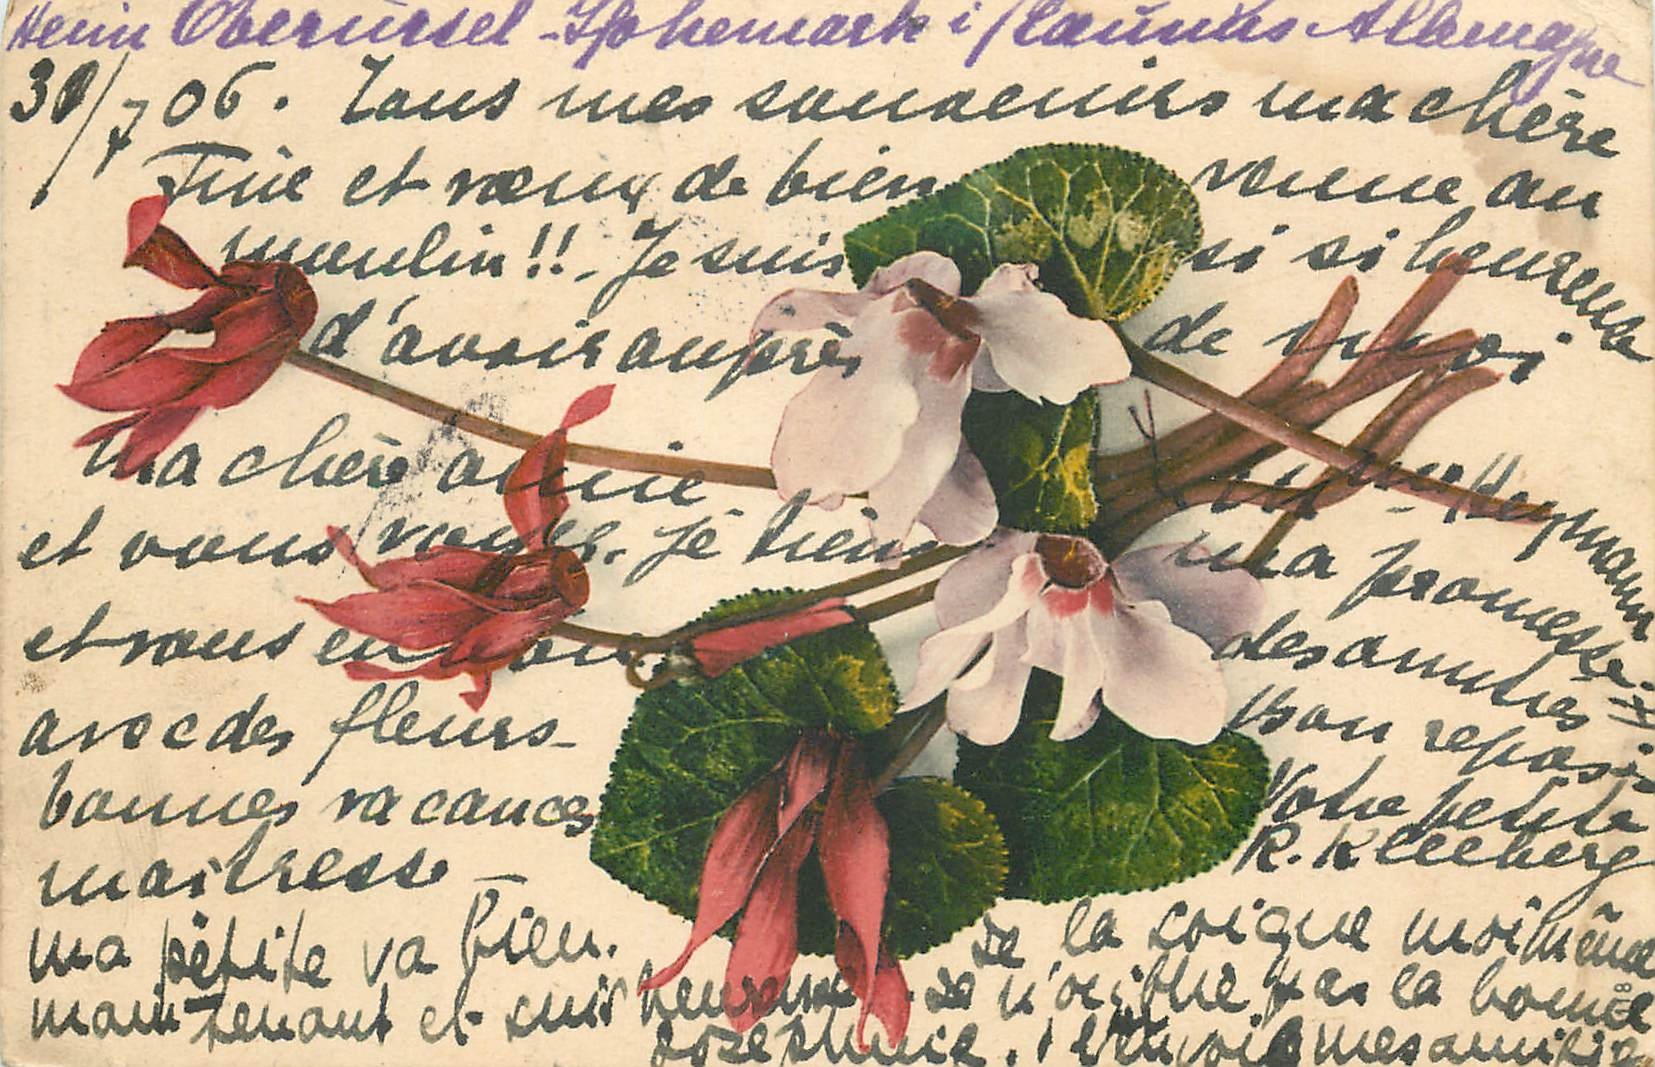 Oberursel - Hohemark i/Taunus Allemagne
30/7 06. Tous mes souvenirs ma chère
Fine et vœux de bien venue au
moulin!! - Je suis si si heureuse
d'avoir auprès de moi
ma chère amie Heymann
et vous . Je tiens ma promesse
et vous des amitiés
avec des fleurs - Bon repos
bonnes vacances Votre petite
maitresse - R. Kleeberg
ma petite va bien. Je la soigne moi même
maintenant et suis heureuse. Je n'oublie pas la bonne
Josephine. l'envois mes amitiés